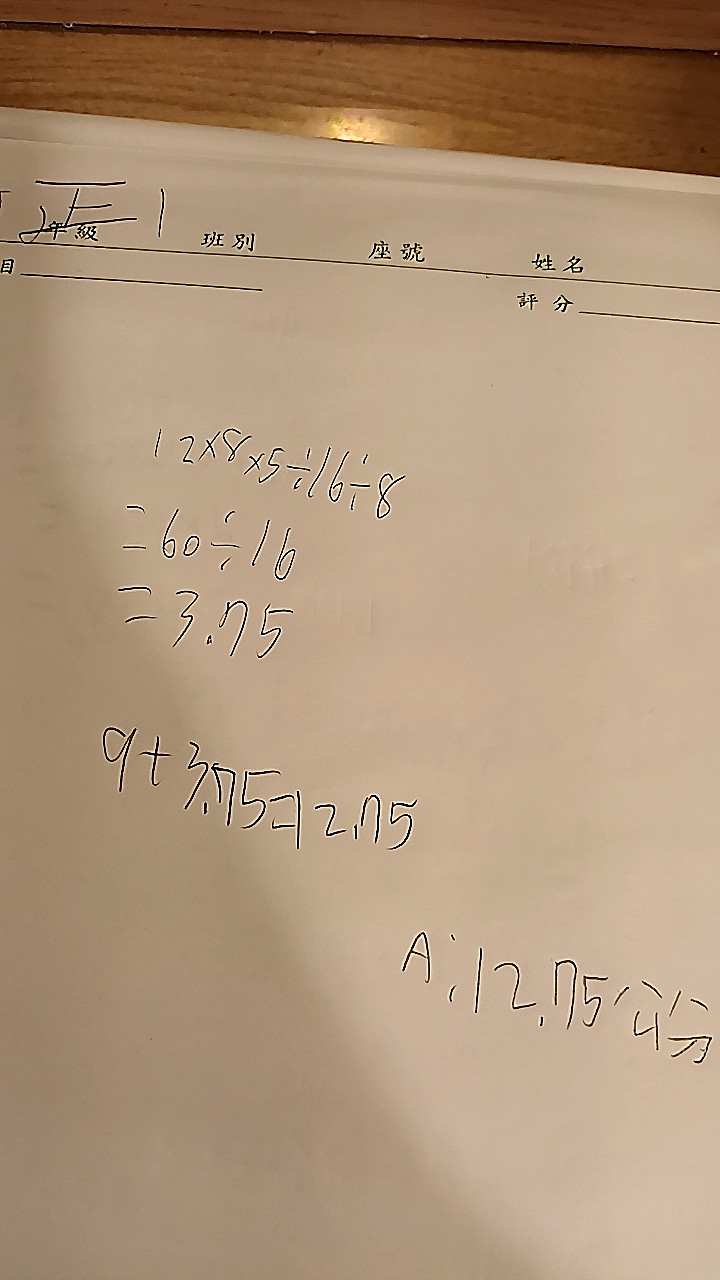 正1
年級 班別 座號 姓名
目
評分
12×8×5÷16÷8
=60÷16
=3.75
9+3.75=12.75
A:12.75公分